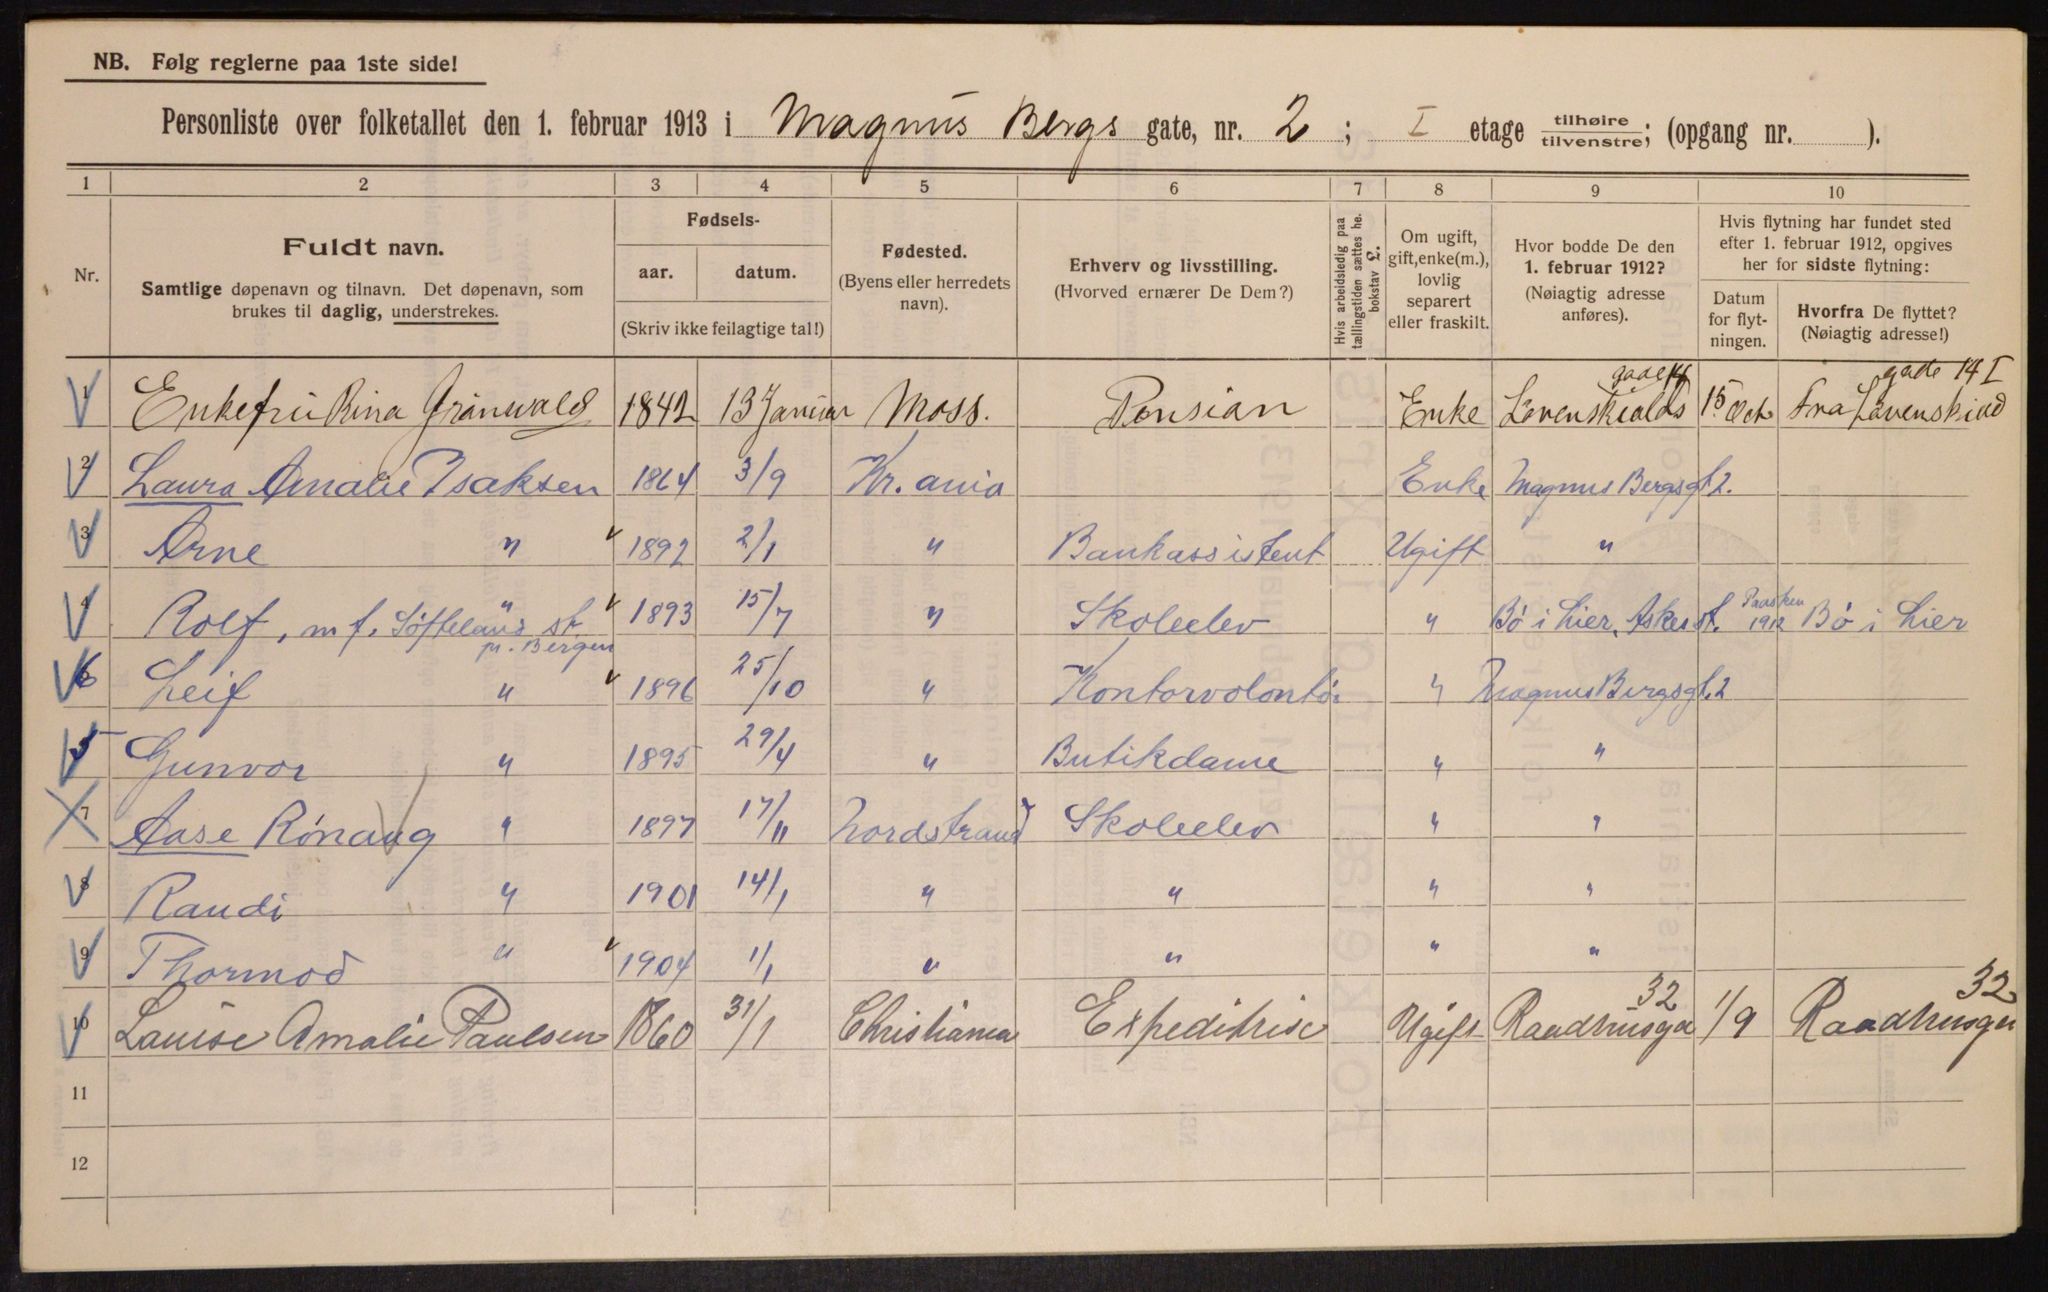 NB. Følg reglerne paa 1ste side!
Personliste over folketallet den 1. februar 1913 i Magnus Bergs gate, nr. 2 ; I etage tilhøire / tilvenstre; (opgang nr. ).
1 2 3 4 5 6 7 8 9 10
Nr.
Fuldt navn.
Samtlige døpenavn og tilnavn. Det døpenavn, som
brukes til daglig, understrekes.
Fødsels-
aar. datum.
(Skriv ikke feilagtige tal!)
Fødested.
(Byens eller herredets
navn).
Erhverv og livsstilling.
(Hvorved ernærer De Dem?)
Hvis arbeidsledig paa
tællingstiden sættes he.
bokstav L.
Om ugift,
gift, enke(m.),
lovlig
separert
eller fraskilt.
Hvor bodde De den
1. februar 1912?
(Nøiagtig adresse
anføres).
Hvis flytning har fundet sted
efter 1. februar 1912, opgives
her for sidste flytning:
Datum
for flyt-
ningen.
Hvorfra De flyttet?
(Nøiagtig adresse!)
gade 14 gade 14 I
1 Enkefru Rina Grünwald 1842 13 Januar Moss. Pensian Enke Løvenskialds 15 Oct Fra Løvenskiold
2 Laura Amalie Isaksen 1864 3/9 Kr.ania Enke Magnus Bergsgt 2.
3 Arne " 1892 2/1 " Bankassistent Ugift "
4 Rolf, m f. Søfteland st. " 1893 15/7 " Skoleelev " Bø i Lier, Asker st. Paasken 1912 Bø i Lier
pr. Bergen
6 Leif " 1896 25/10 " Kontorvolontør " Magnus Bergsgt. 2
5 Gunvor " 1895 29/4 " Butikdame " "
7 Aase Rønaug " 1897 17/11 Nordstrand Skoleelev " "
8 Randi " 1901 14/1 " " " "
9 Thormod " 1904 1/1 " " " "
32 32
10 Louise Amalie Paulsen 1860 31/1 Christiania Expeditrise Ugift Raadhusga 1/9 Raadhusga
11
12